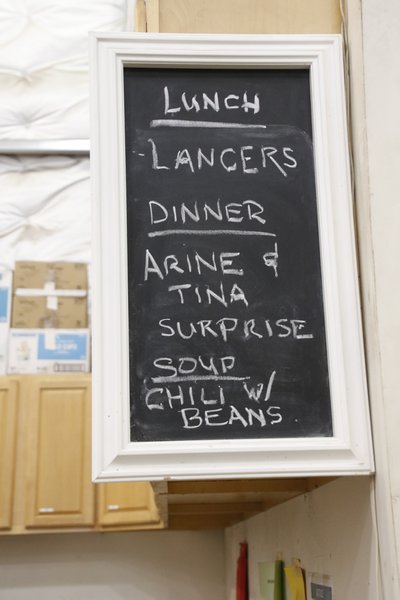 LUNCH
-LANCERS
DINNER
ARINE &
TINA
SURPRISE
SOUP
CHILI W/
BEANS